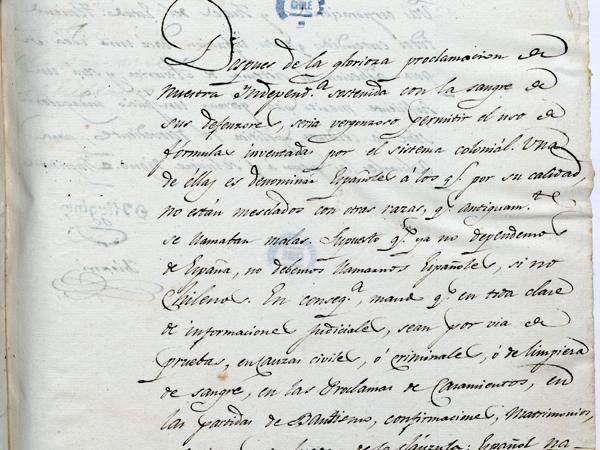 CHILE
Despues de la glorioza proclamacion de
nuestra Independ.ª sostenida con la sangre de
sus defensores, seria vergonzoso permitir el uso de
formulas inventadas por el sistema colonial. Una
de ellas es denominar Españoles á los q.e por su calidad,
no están mesclados con otras razas, q.e antiquam.te
se llamaban malas. Supuesto q.e ya no dependemos
de España, no debemos llamarnos Españoles, si no
Chilenos. En conseq.ª mando q.e en toda clase
de informaciones judiciales, sean por via de
pruebas, en causas civiles, ó criminales, ó de limpieza
de sangre, en las Proclamas de Casamientos, en
las partidas de Bautismo, confirmaciones, Matrimonios,
de la cláusula: Español na-